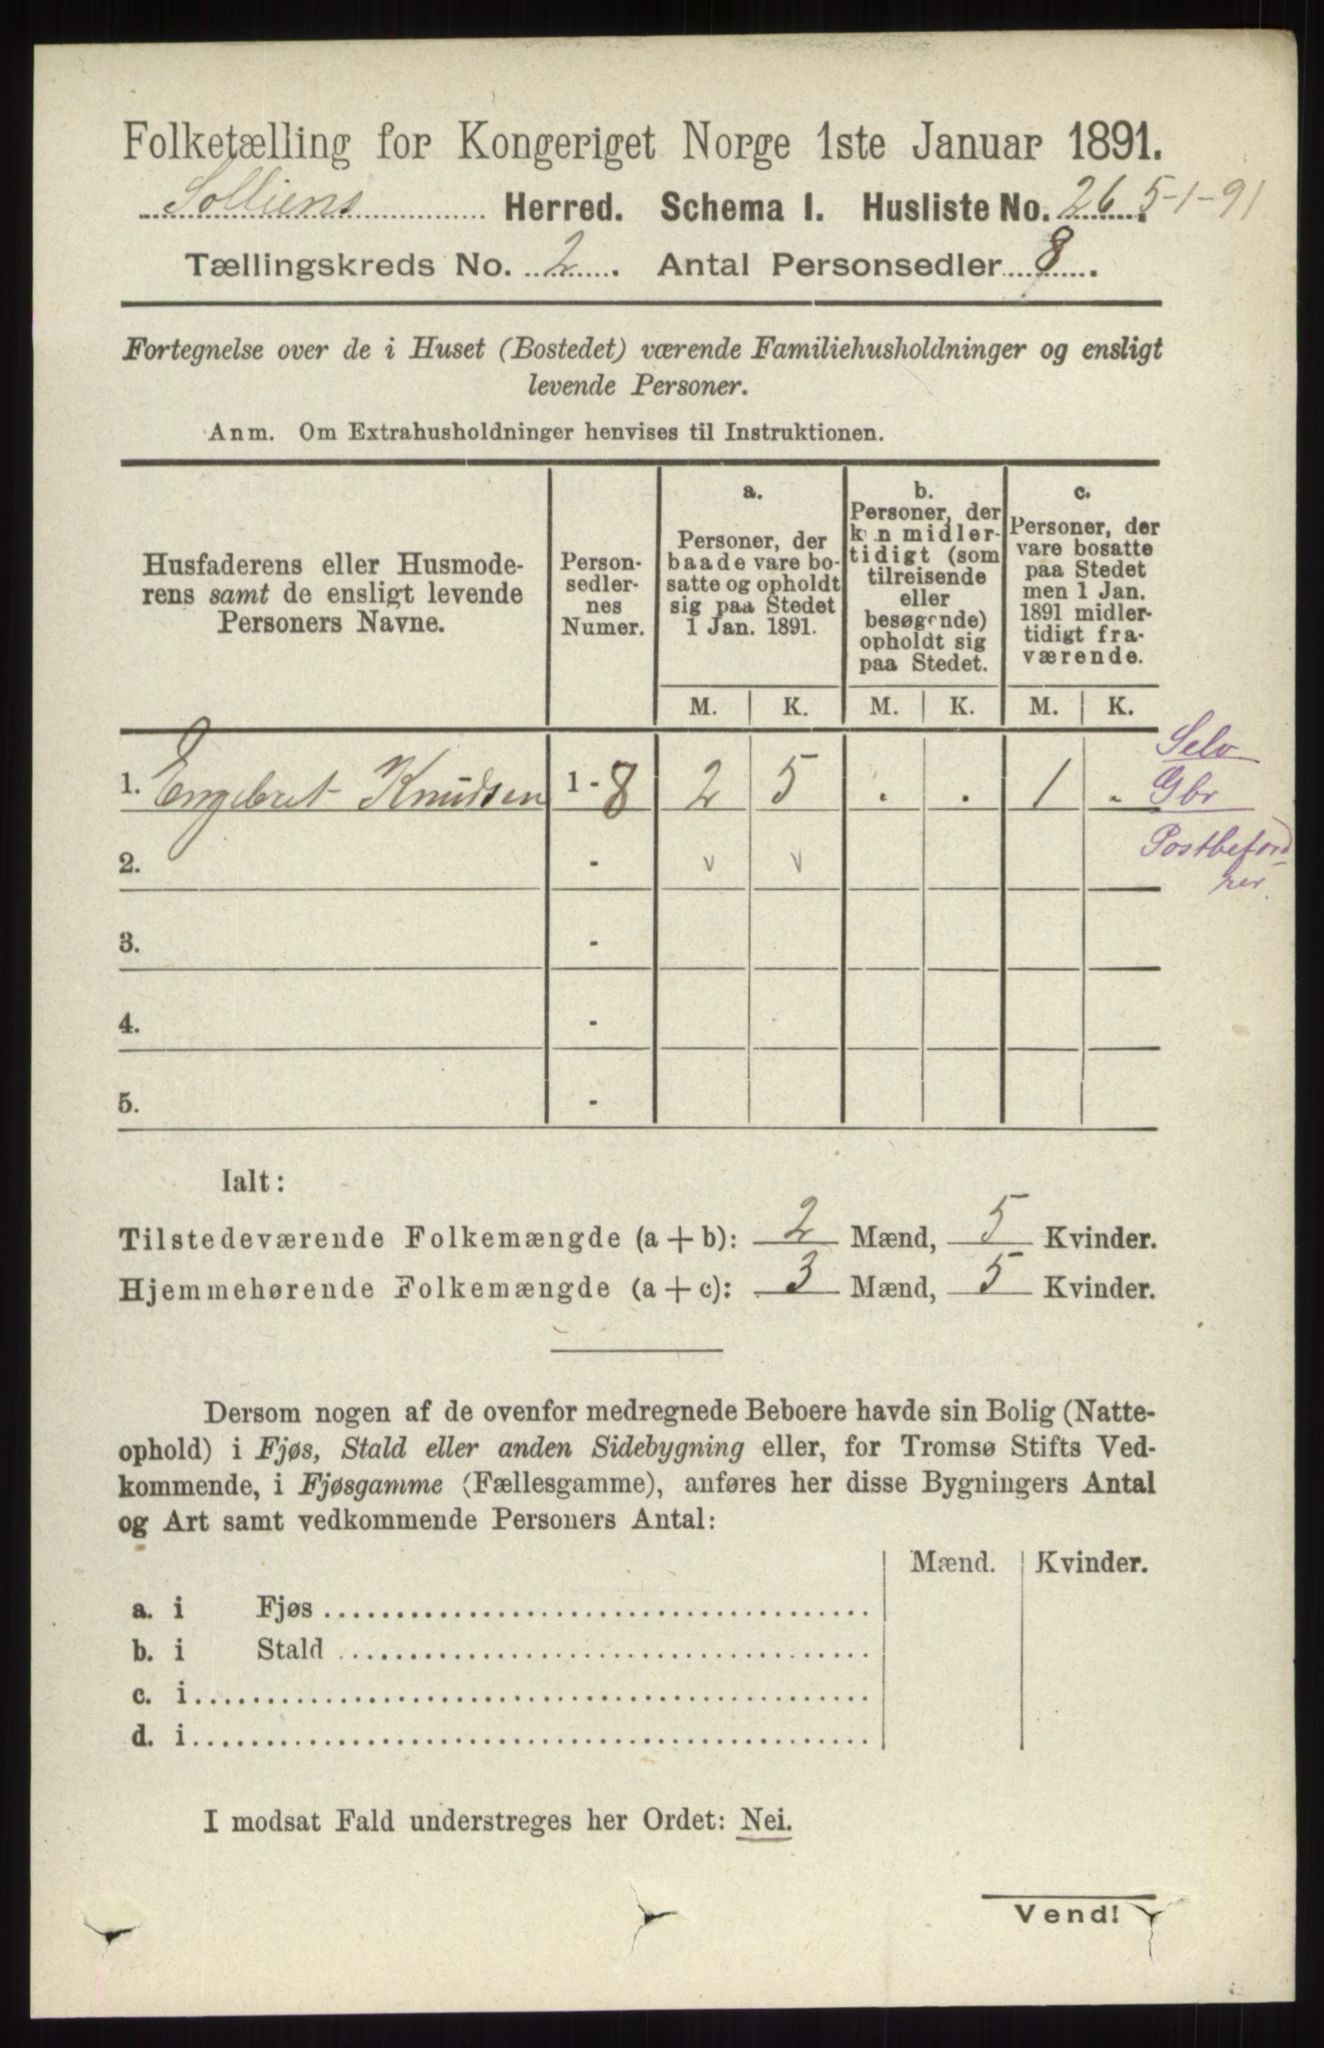 Folketælling for Kongeriget Norge 1ste Januar 1891.
Solliens Herred. Schema I. Husliste No. 26. 5-1-91
Tællingskreds No. 2. Antal Personsedler 8.
Fortegnelse over de i Huset (Bostedet) værende Familiehusholdninger og ensligt
levende Personer.
Anm. Om Extrahusholdninger henvises til Instruktionen.
Husfaderens eller Husmode-
rens samt de ensligt levende
Personers Navne.
Person-
sedler-
nes
Numer.
a.
Personer, der
baade vare bo-
satte og opholdt
sig paa Stedet
1 Jan. 1891.
b.
Personer, der
kun midler-
tidigt (som
tilreisende
eller
besøgende)
opholdt sig
paa Stedet.
c.
Personer, der
vare bosatte
paa Stedet
men 1 Jan.
1891 midler-
tidigt fra-
værende.
M. K. M. K. M. K.
1. Engebret Knudsen 1 - 8 2 5 . . 1 .
Selv
Gbr
Postbeford
rer.
2. - v v
3. -
4. -
5. -
Ialt:
Tilstedeværende Folkemængde (a + b): 2 Mænd, 5 Kvinder.
Hjemmehørende Folkemængde (a + c): 3 Mænd, 5 Kvinder.
Dersom nogen af de ovenfor medregnede Beboere havde sin Bolig (Natte-
ophold) i Fjøs, Stald eller anden Sidebygning eller, for Tromsø Stifts Ved-
kommende, i Fjøsgamme (Fællesgamme), anføres her disse Bygningers Antal
og Art samt vedkommende Personers Antal:
Mænd. Kvinder.
a. i Fjøs
b. i Stald
c. i
d. i
I modsat Fald understreges her Ordet: Nei.
Vend!